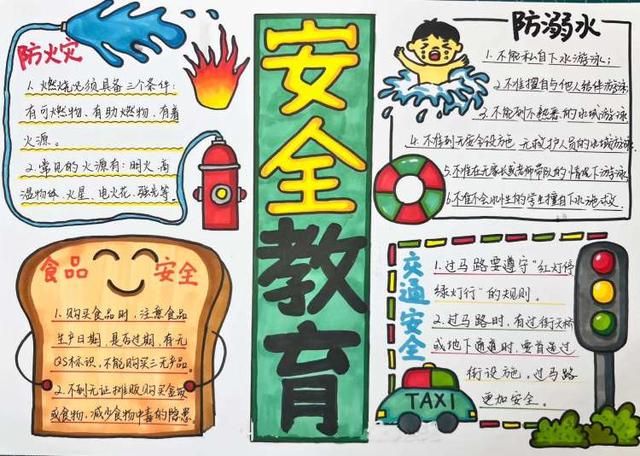 安全教育
防火灾
1.燃烧必须具备三个条件
有可燃物、有助燃物、有着
火源。
2.常见的火源有:明火、高
温物体、火星、电火花、强光等。
防溺水
1.不能私自下水游泳;
2.不准擅自与他人结伴游泳
3.不能到不熟悉的水域游泳
4.不准到无安全设施、无救护人员的水域游泳
5.不准在无家长或老师带队的情况下游泳
6.不准不会水性的学生擅自下水施救
食品安全
1.购买食品时,注意食品
生产日期,是否过期,有无
QS标识,不能购买三无产品。
2.不到无证摊贩购买盒饭
或食物,减少食物中毒的隐患
交通安全
1.过马路要遵守“红灯停
绿灯行”的规则。
2.过马路时,有过街天桥
或地下通道时,要首选过
街设施,过马路
更加安全。
TAXI